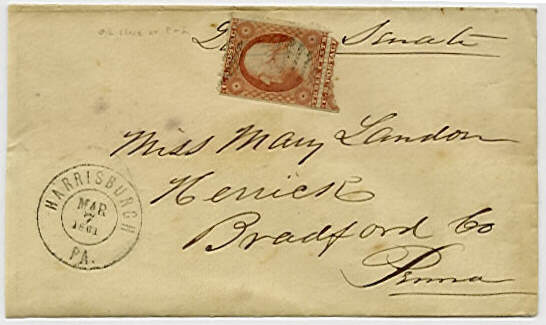 Senate
Miss Mary Landon
Herrick
Bradford Co
Penna
HARRISBURGH
MAR
7
1861
PA.